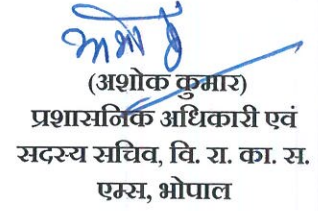 (अशोक कुमार)
प्रशासनिक अधिकारी एवं
सदस्य सचिव, वि. रा. का. स.
एम्स, भोपाल